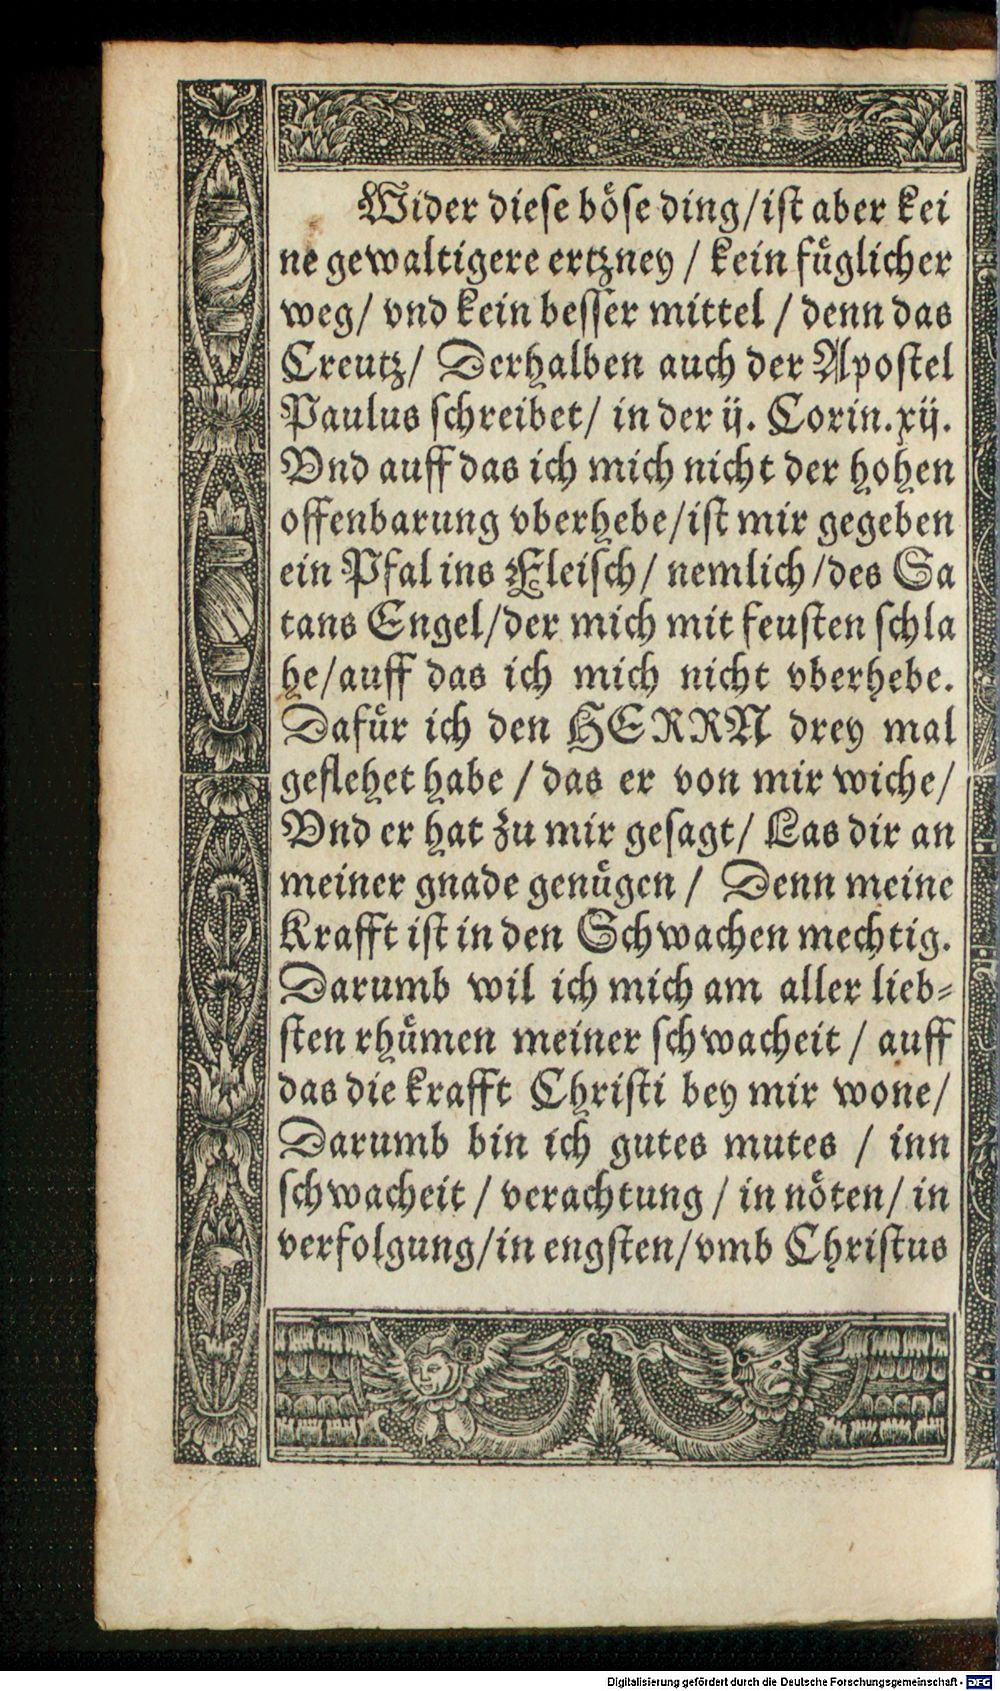 Wider diese böse ding/ist aber kei
ne gewaltigere ertzney / kein füglicher
weg/ vnd kein besser mittel / denn das
Creutz/ Derhalben auch der Apostel
Paulus schreibet/ in der ij. Corin. xij.
Vnd auff das ich mich nicht der hohen
offenbarung vberhebe/ist mir gegeben
ein Pfal ins Fleisch/ nemlich/des Sa
tans Engel/der mich mit feusten schla
he/auff das ich mich nicht vberhebe.
Dafür ich den HERRN drey mal
geflehet habe / das er von mir wiche/
Vnd er hat zu mir gesagt/ Las dir an
meiner gnade genügen / Denn meine
Krafft ist in den Schwachen mechtig.
Darumb wil ich mich am aller lieb-
sten rhümen meiner schwacheit / auff
das die krafft Christi bey mir wone/
Darumb bin ich gutes mutes / inn
schwacheit / verachtung / in nöten/ in
verfolgung/in engsten/vmb Christus
Digitalisierung gefördert durch die Deutsche Forschungsgemeinschaft - DFG